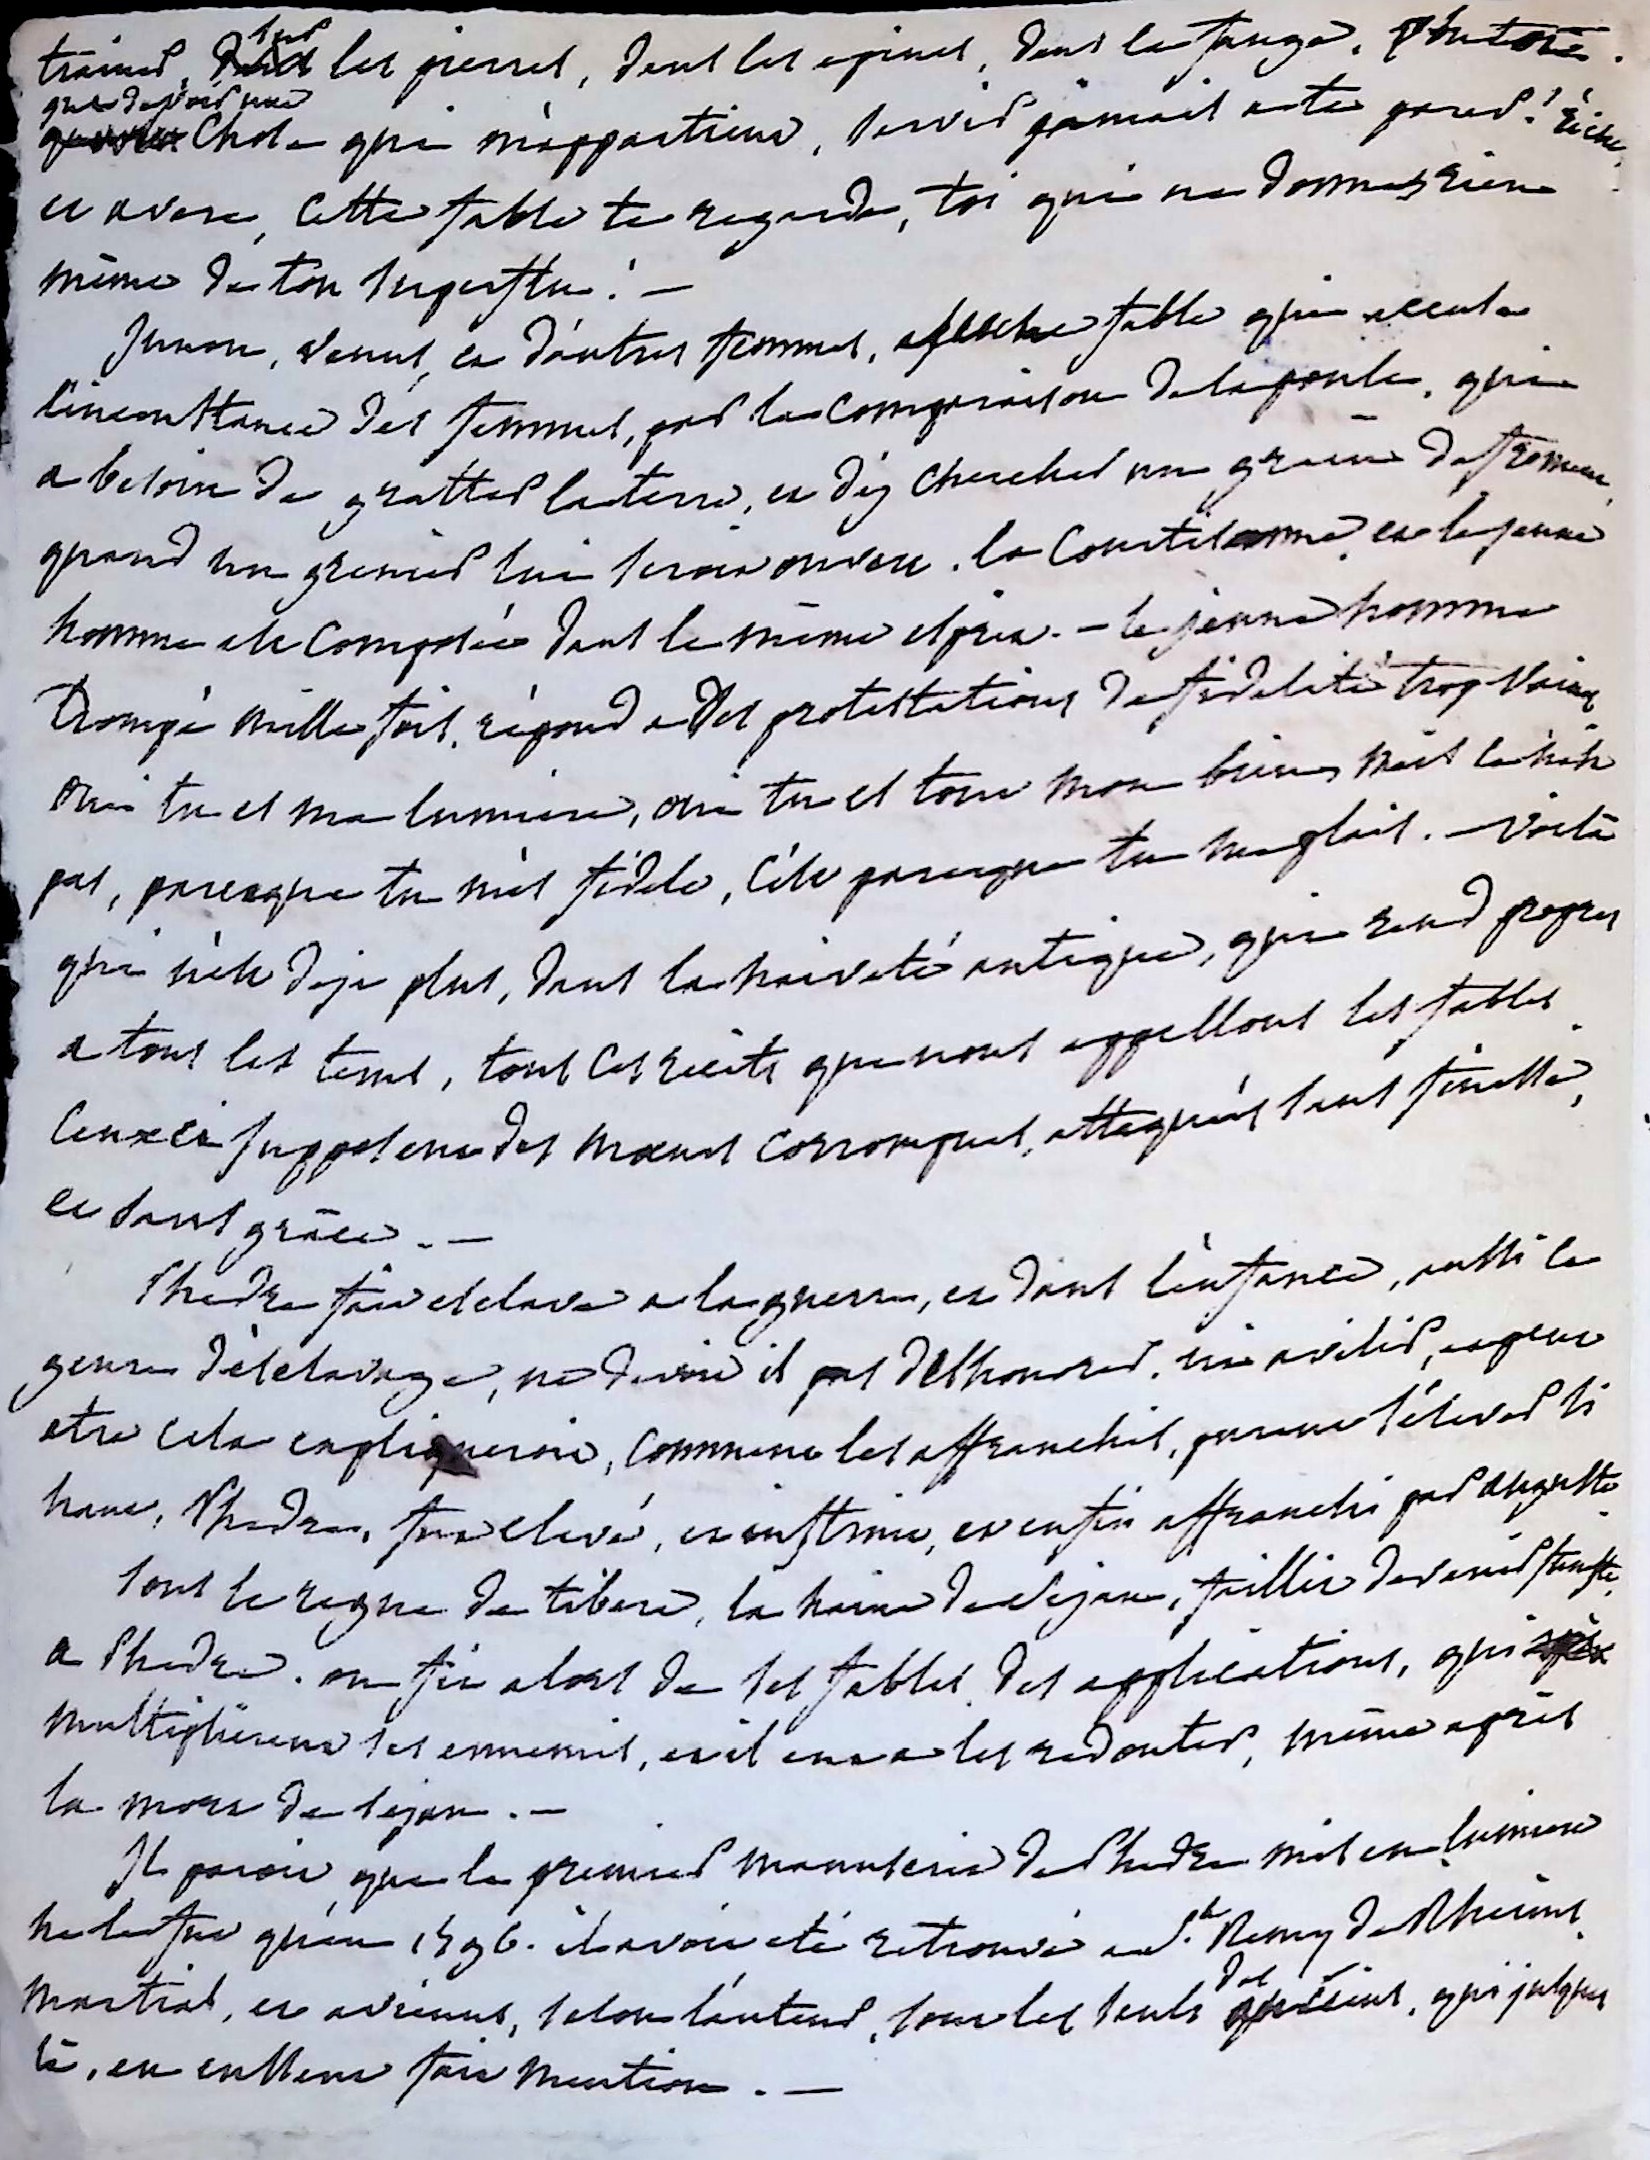 trainer, sur les pierres, dans les epines, dans la fange. plutost.
que de voir une chose qui m'appartient, servir jamais a te parer! riche,
et avare, cette fable te regarde, toi qui ne donnes rien
même de ton superflu! —
Junon, venus, et d'autres femmes, est une fable qui accuse
l'inconstance des femmes, par la comparaison de la poule, qui
a besoin de gratter la terre, et d'y chercher un grain de froment,
quand un grenier lui seroit ouvert. la Courtisanne et le jeune
homme est composée dans le même esprit. — le jeune homme
trompé mille fois, répond a des protestations de fidelité trop vaines
oui tu es ma lumiere, oui tu es tout mon bien, mais ce n'est
pas, parceque tu m'es fidele, c'est parceque tu me plais. — voilà
qui n'est deja plus, dans la naiveté antique, qui rend propres
a tous les tems, tous ces recits que nous appellons les fables
Ceux ci supposent des mœurs corrompues, attaquées sans finesse,
et sans grâce. —
Phedre fait esclave a la guerre, et dans l'enfance, aussi ce
genre d'esclavage, ne devoit il pas deshonorer, ni avilir, et peut
etre cela expliqueroit, comment les affranchis, purent s'élever si
haut, Phedre, fut elevé, et instruit, et enfin affranchi par auguste.
sous le regne de tibere, la haine de Sejan, faillit devenir funeste,
a Phedre. on fit alors de ses fables, des applications, qui
multiplièrent ses ennemis, et il eut a les redouter, même après
la mort de sejan. —
Il paroit que le premier manuscrit de Phedre mis en lumiere
ne le fut qu'en 1596. il avoit été retrouvé a St. Remy de Rheims.
Martial, et avienus, selon l'auteur, sont les seuls des anciens, qui jusques
là, en eussent fait mention. —